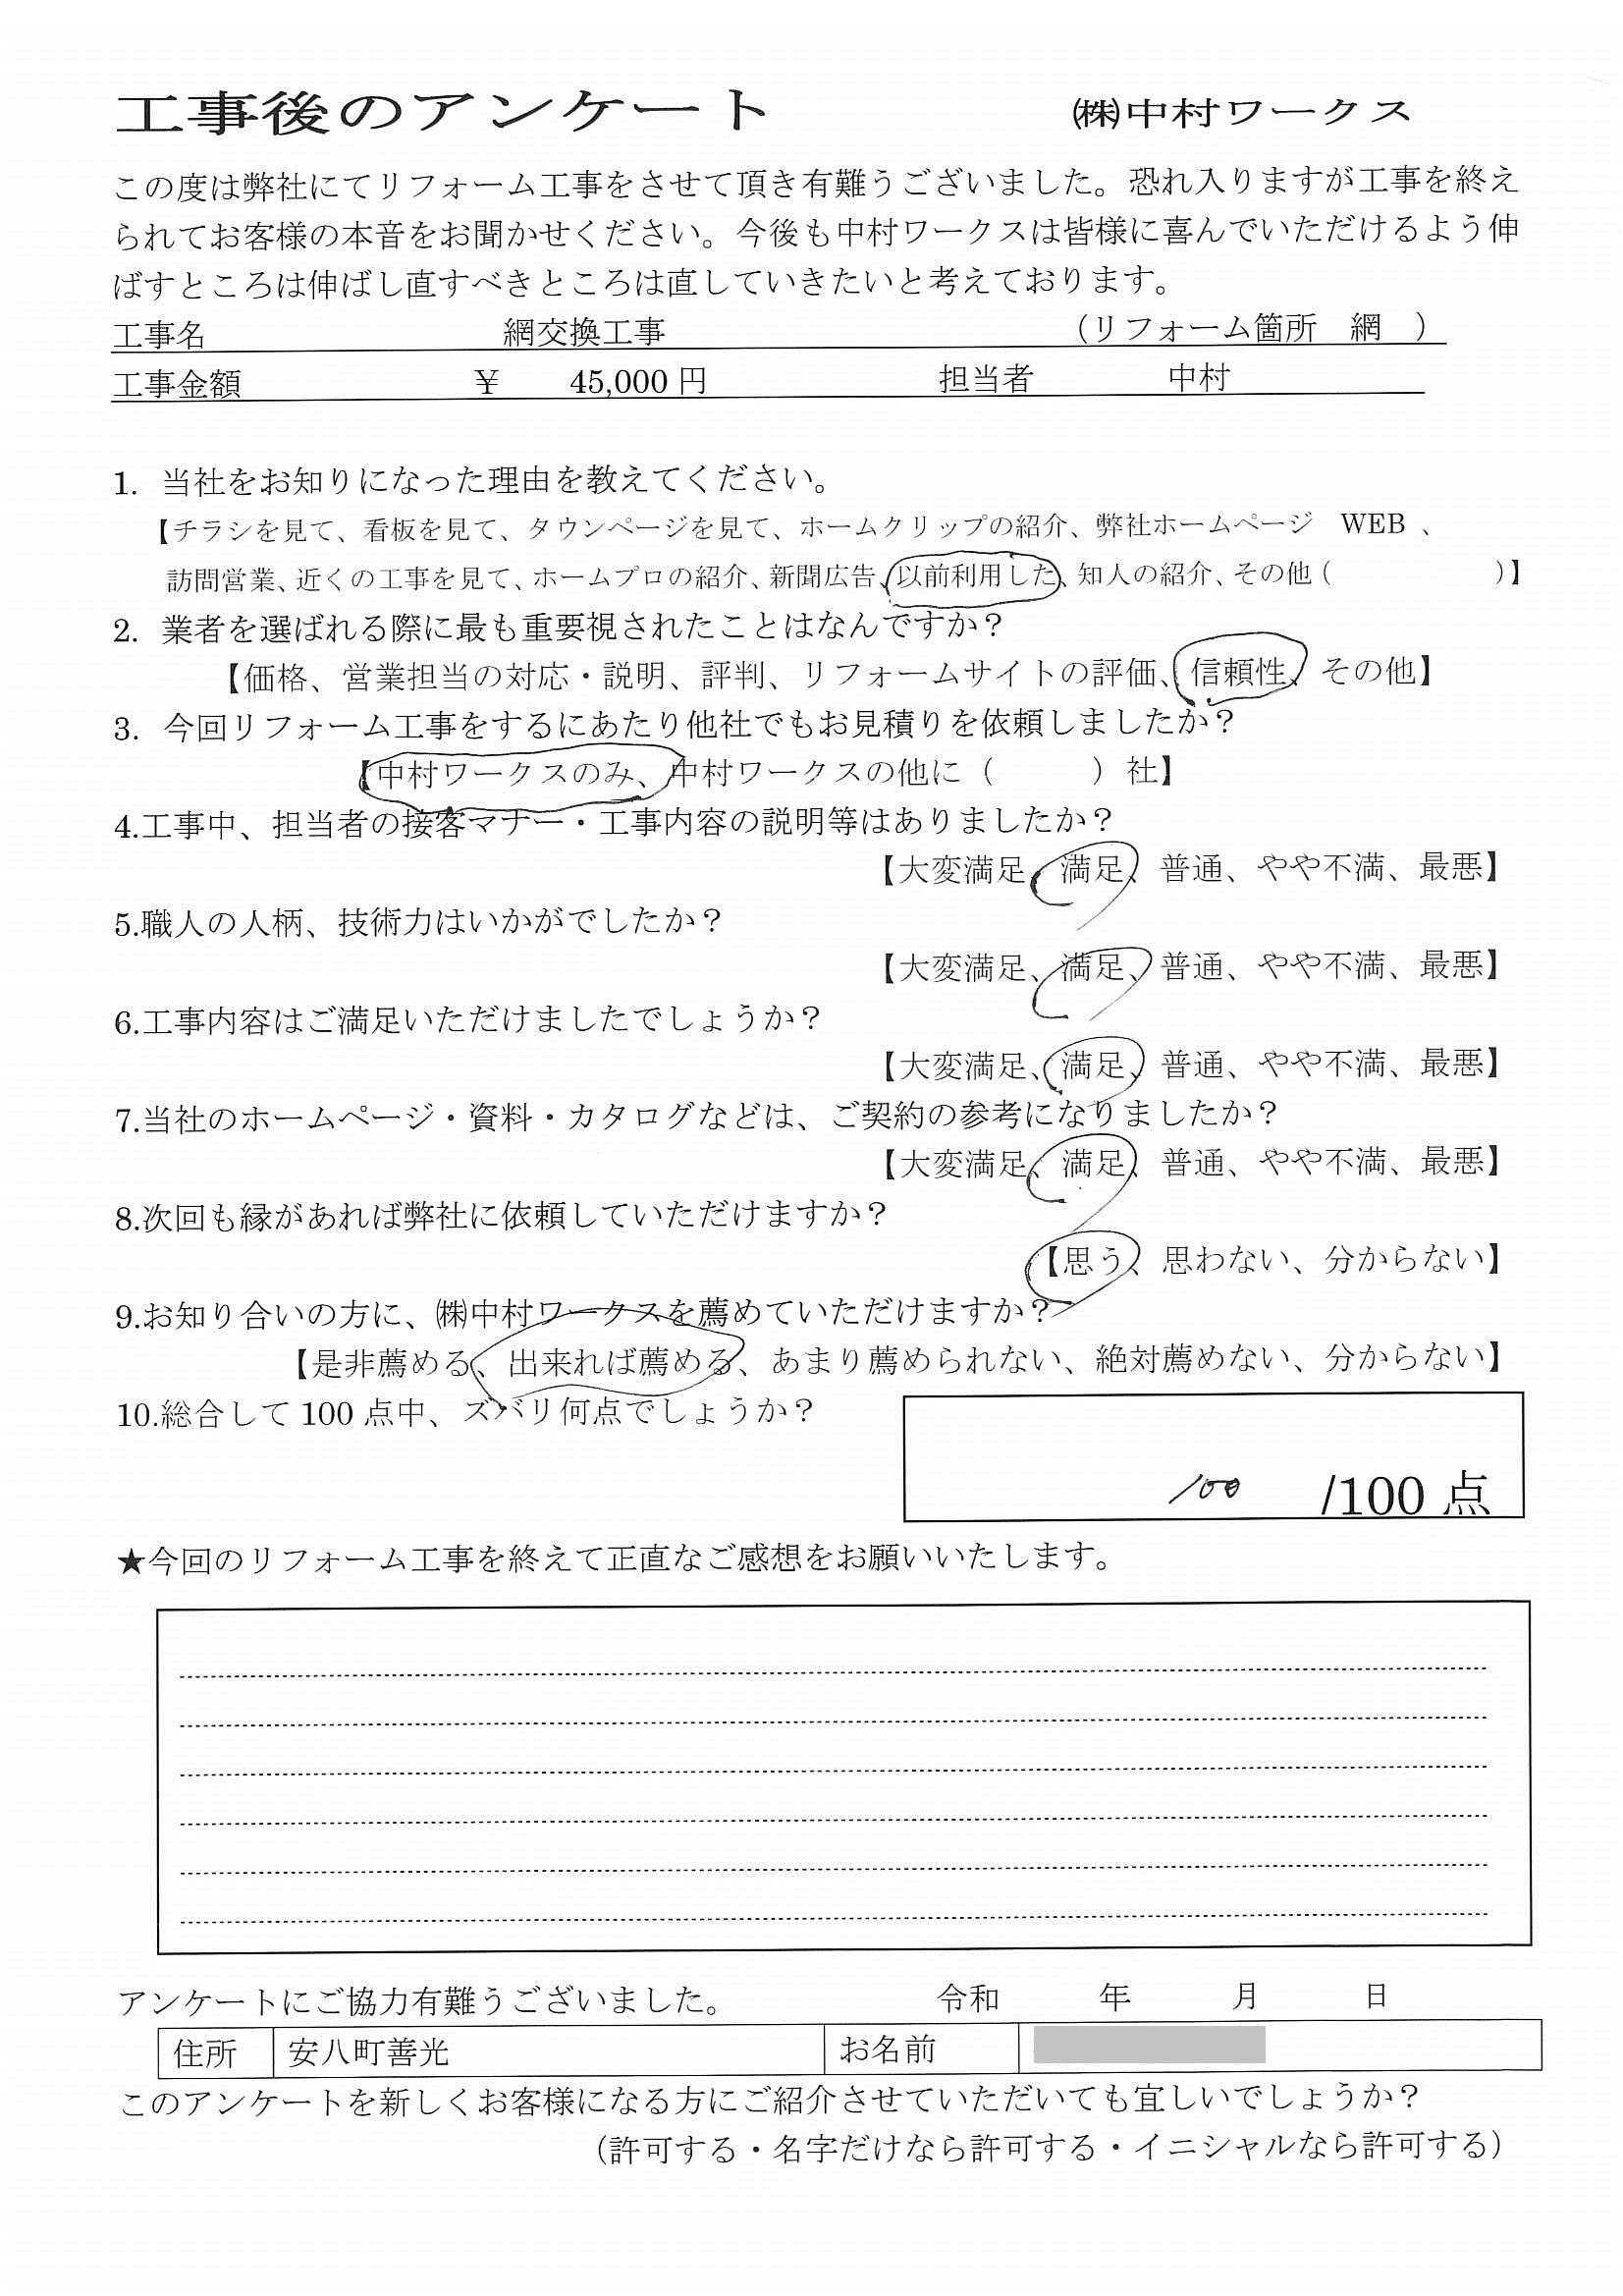 工事後のアンケート ㈱中村ワークス
この度は弊社にてリフォーム工事をさせて頂き有難うございました。恐れ入りますが工事を終え
られてお客様の本音をお聞かせください。今後も中村ワークスは皆様に喜んでいただけるよう伸
ばすところは伸ばし直すべきところは直していきたいと考えております。
工事名 網交換工事 (リフォーム箇所 網 )
工事金額 ¥ 45,000 円 担当者 中村
1. 当社をお知りになった理由を教えてください。
【チラシを見て、看板を見て、タウンページを見て、ホームクリップの紹介、弊社ホームページ WEB 、
訪問営業、近くの工事を見て、ホームプロの紹介、新聞広告、以前利用した、知人の紹介、その他( )】
2. 業者を選ばれる際に最も重要視されたことはなんですか？
【価格、営業担当の対応・説明、評判、リフォームサイトの評価、信頼性、その他】
3. 今回リフォーム工事をするにあたり他社でもお見積りを依頼しましたか？
【中村ワークスのみ、中村ワークスの他に（ ）社】
4.工事中、担当者の接客マナー・工事内容の説明等はありましたか？
【大変満足、満足、普通、やや不満、最悪】
5.職人の人柄、技術力はいかがでしたか？
【大変満足、満足、普通、やや不満、最悪】
6.工事内容はご満足いただけましたでしょうか？
【大変満足、満足、普通、やや不満、最悪】
7.当社のホームページ・資料・カタログなどは、ご契約の参考になりましたか？
【大変満足、満足、普通、やや不満、最悪】
8.次回も縁があれば弊社に依頼していただけますか？
【思う、思わない、分からない】
9.お知り合いの方に、㈱中村ワークスを薦めていただけますか？
【是非薦める、出来れば薦める、あまり薦められない、絶対薦めない、分からない】
10.総合して 100 点中、ズバリ何点でしょうか？
100 /100 点
★今回のリフォーム工事を終えて正直なご感想をお願いいたします。
アンケートにご協力有難うございました。 令和 年 月 日
住所 安八町善光 お名前
このアンケートを新しくお客様になる方にご紹介させていただいても宜しいでしょうか？
（許可する・名字だけなら許可する・イニシャルなら許可する）